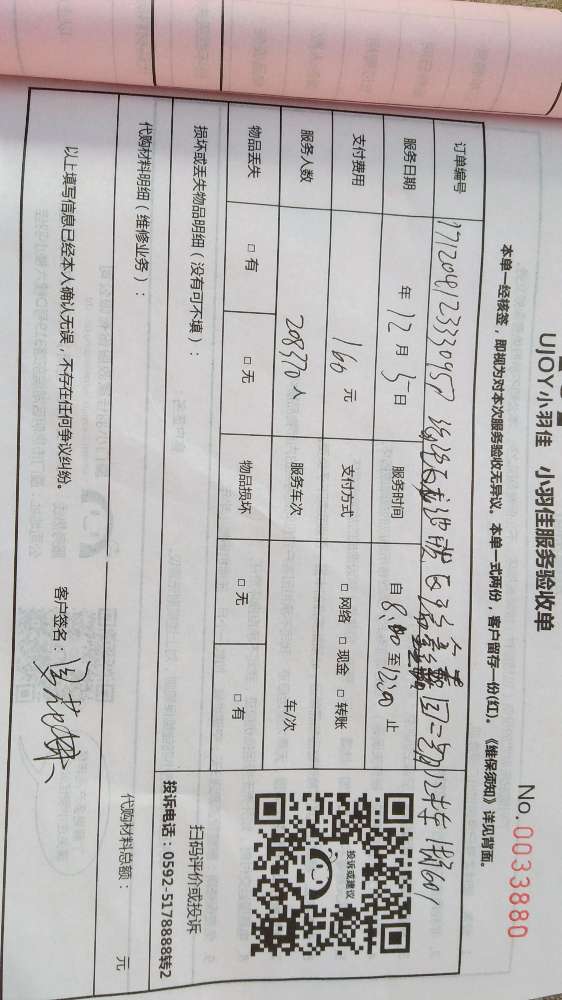 UJOY小羽佳 小羽佳服务验收单
No. 0033880
本单一经核签，即视为对本次服务验收无异议。本单一式两份，客户留存一份(红)。《维保须知》详见背面。
订单编号 1712041233330957
服务日期 年12月5日 服务时间 自8:00至12:00止
支付费用 160元 支付方式 □网络 □现金 □转账
服务人数 208370人 服务车次 车/次
物品丢失 □有 □无 物品损坏 □无 □有
投诉或建议
扫码评价或投诉
投诉电话：0592-5178888转2
损坏或丢失物品明细（没有可不填）：
代购材料明细（维修业务）：
代购材料总额： 元
以上填写信息已经本人确认无误，不存在任何争议纠纷。
客户签名：